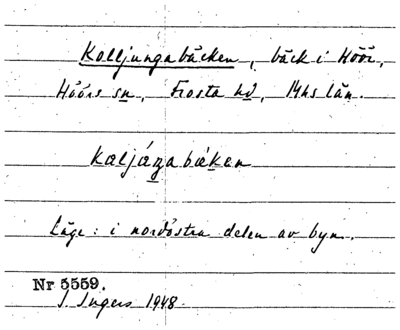 Kolljungabäcken, bäck i Höör,
Höörs sn, Frosta hd, Mhs län.
Läge: i nordöstra delen av byn.
Nr 5559.
I. Ingers 1948.